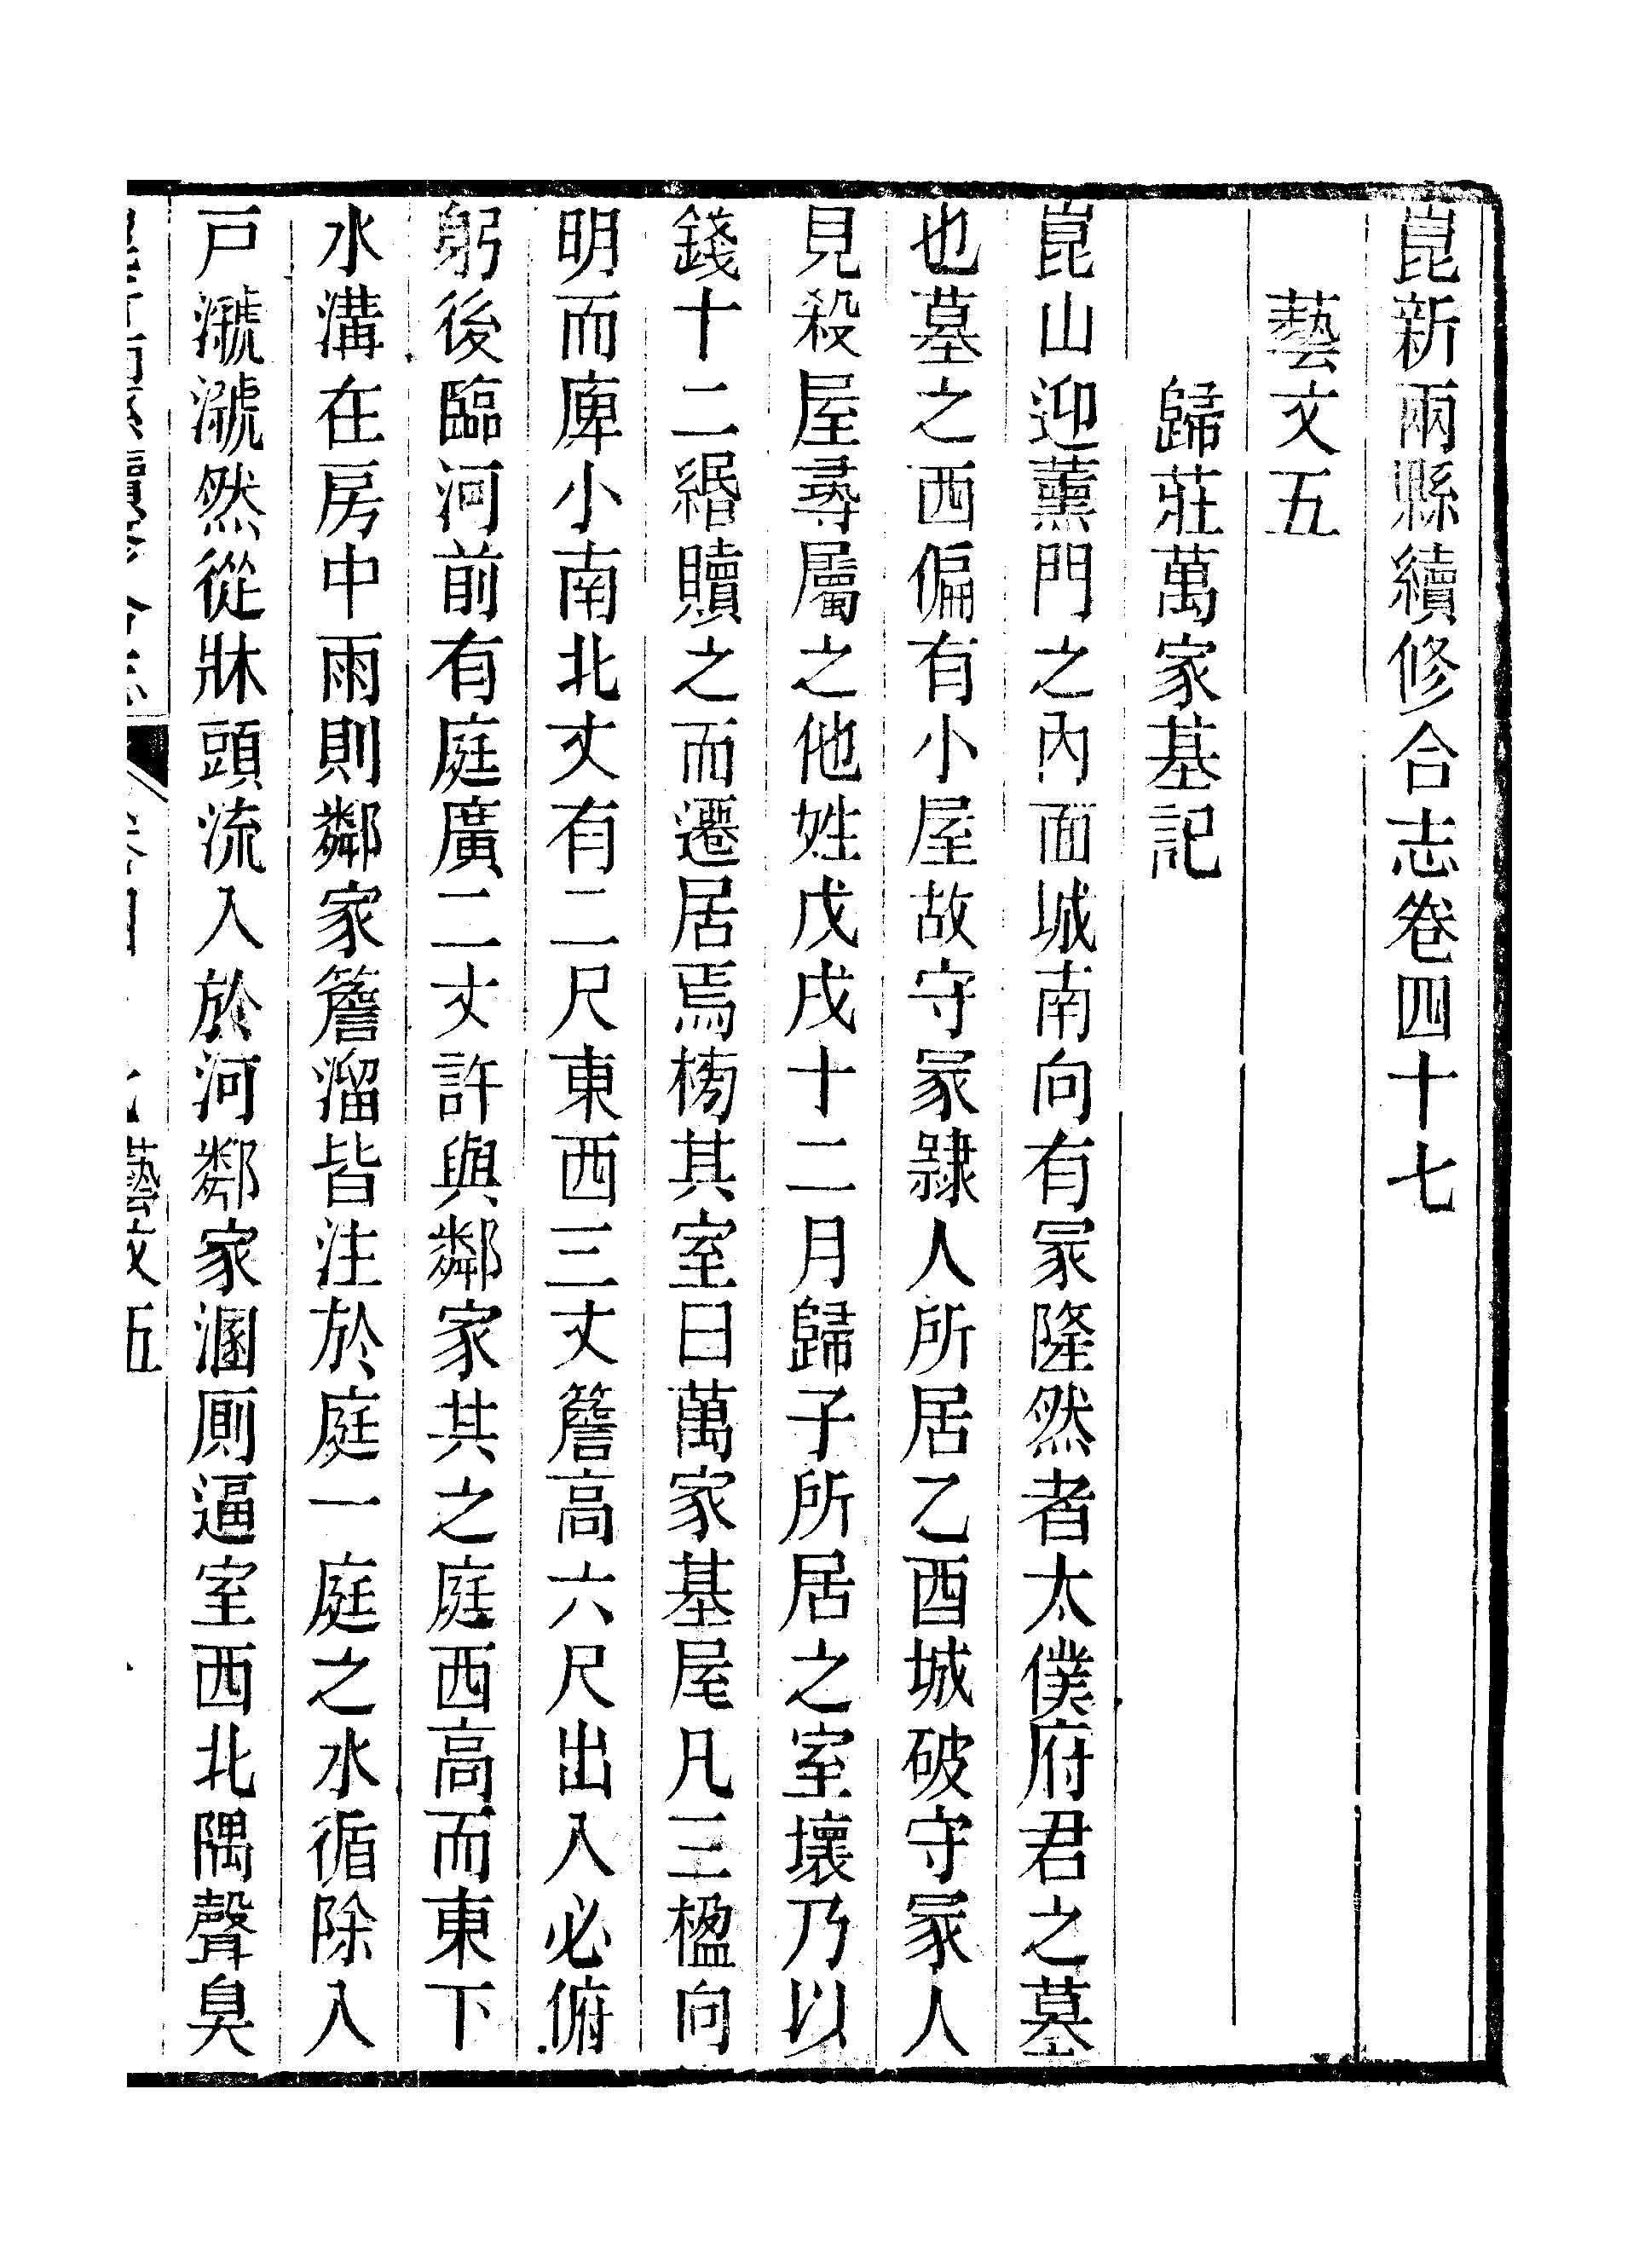 崑新兩縣續修合志卷四十七
藝文五
歸莊萬家基記
崑山迎薰門之內面城南向有冢隆然者太僕府君之墓
也墓之西偏有小屋故守冢隸人所居乙酉城破守冢人
見殺屋尋屬之他姓戊戌十二月歸子所居之室壞乃以
錢十二緡贖之而遷居焉榜其室曰萬家基屋凡三楹向
明而庳小南北丈有二尺東西三丈簷高六尺出入必俯
躬後臨河前有庭廣二丈許與鄰家共之庭西高而東下
水溝在房中雨則鄰家簷溜皆注於庭一庭之水循除入
戶㶁㶁然從牀頭流入於河鄰家溷厠逼室西北隅聲臭